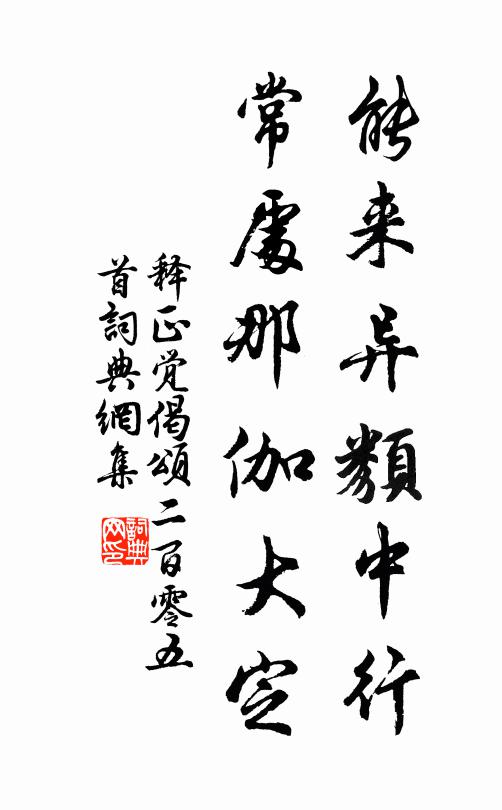 能来异類中行
常處那伽大定
释正觉偈頌二百零五
首詞典網集
詞典网印